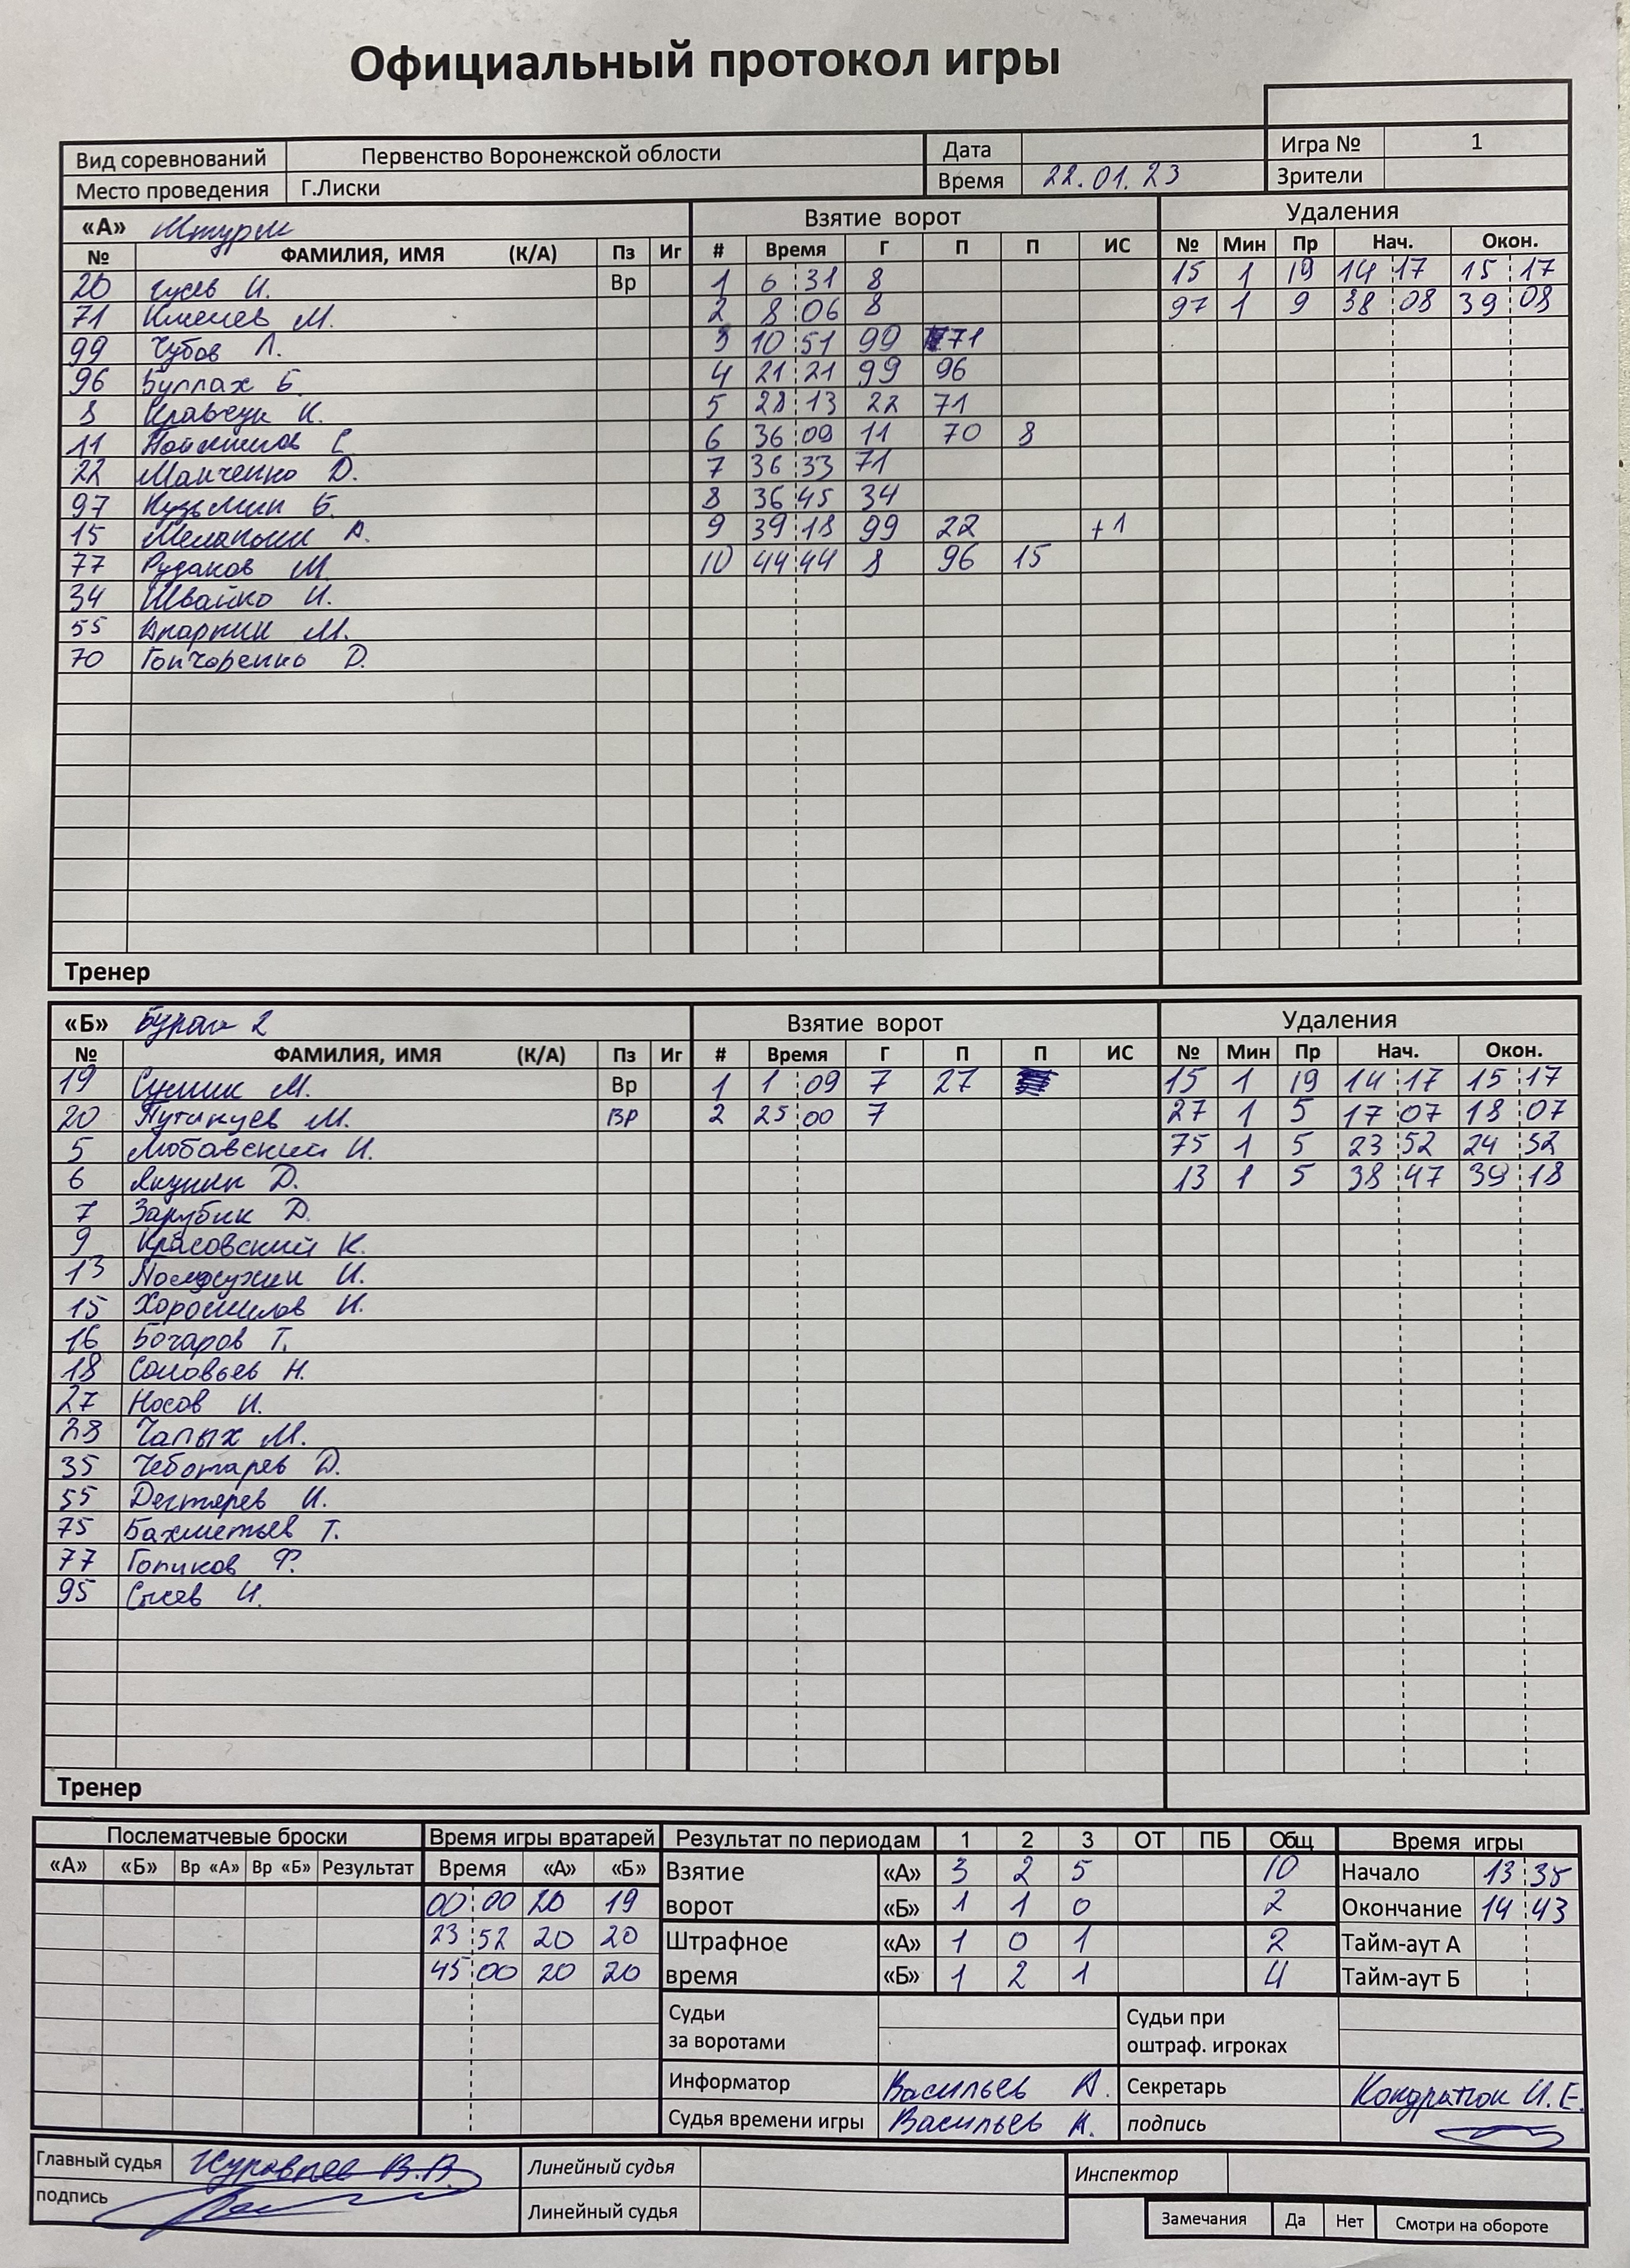 Официальный протокол игры
Вид соревнований Первенство Воронежской области Дата Игра № 1
Место проведения Г.Лиски Время 22.01.23 Зрители
«А» Штурм Взятие ворот Удаления
№ ФАМИЛИЯ, ИМЯ (К/А) Пз Иг # Время Г П П ИС № Мин Пр Нач. Окон.
20 Гусев И. Вр 1 6 31 8 15 1 19 14 17 15 17
71 М. 2 8 06 8 97 1 9 38 08 39 08
99 Чубов Л. 3 10 51 99 71
96 Буллах Б. 4 21 21 99 96
8 Кравчук К. 5 28 13 22 71
11 С. 6 36 09 11 70 8
22 Манченко D. 7 36 33 71
97 Кузьмин Б. 8 36 45 34
15 А. 9 39 18 99 22 +1
77 Рудаков М. 10 44 44 8 96 15
34 Швайко И.
55 М.
70 Гончоренко D.
Тренер
«Б» Буран 2 Взятие ворот Удаления
№ ФАМИЛИЯ, ИМЯ (К/А) Пз Иг # Время Г П П ИС № Мин Пр Нач. Окон.
19 М. Вр 1 1 09 7 27 15 1 19 14 17 15 17
20 М. ВР 2 25 00 7 27 1 5 17 07 18 07
5 И. 75 1 5 23 52 24 52
6 Якунин D. 13 1 5 38 47 39 18
7 Зарубин D.
9 Красовский К.
13 И.
15 Хорошилов И.
16 Бочаров Т.
18 Соловьев Н.
27 Носов И.
28 Чалых М.
35 Чеботарев D.
55 Дегтярев И.
75 Бахметьев Т.
77 Голиков Ф.
95 Сысев И.
Тренер
Послематчевые броски Время игры вратарей Результат по периодам 1 2 3 ОТ ПБ Общ Время игры
«А» «Б» Вр «А» Вр «Б» Результат Время «А» «Б» Взятие «А» 3 2 5 10 Начало 13 35
00 00 20 19 ворот «Б» 1 1 0 2 Окончание 14 43
23 52 20 20 Штрафное «А» 1 0 1 2 Тайм-аут А
45 00 20 20 время «Б» 1 2 1 4 Тайм-аут Б
Судьи за воротами Судьи при оштраф. игроках
Информатор Васильев А. Секретарь Кондратюк И.Е.
Судья времени игры Васильев А. подпись
Главный судья Журавлев В.В. Линейный судья Инспектор
подпись Линейный судья Замечания Да Нет Смотри на обороте